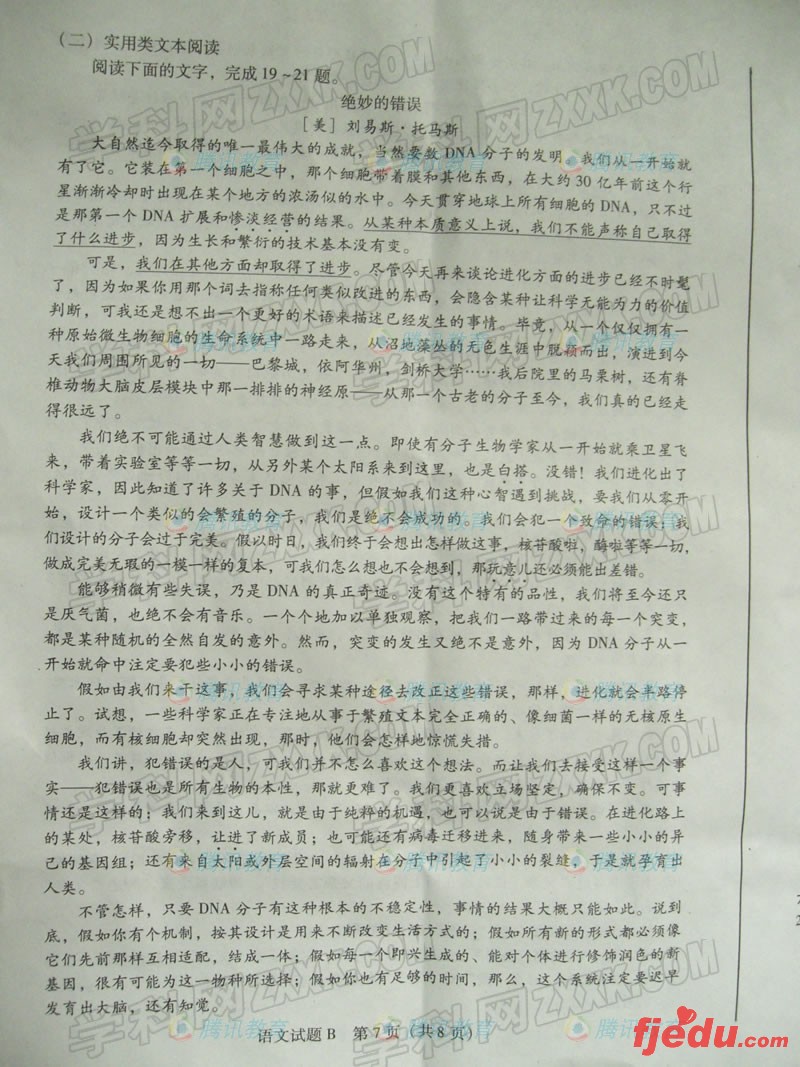 （二）实用类文本阅读
阅读下面的文字，完成19～21题。
绝妙的错误
［美］刘易斯·托马斯
大自然迄今取得的唯一最伟大的成就，当然要数DNA分子的发明。我们从一开始就
有了它。它装在第一个细胞之中，那个细胞带着膜和其他东西，在大约30亿年前这个行
星渐渐冷却时出现在某个地方的浓汤似的水中。今天贯穿地球上所有细胞的DNA，只不过
是那第一个DNA扩展和惨淡经营的结果。从某种本质意义上说，我们不能声称自己取得
了什么进步，因为生长和繁衍的技术基本没有变。
可是，我们在其他方面却取得了进步。尽管今天再来谈论进化方面的进步已经不时髦
了，因为如果你用那个词去指称任何类似改进的东西，会隐含某种让科学无能为力的价值
判断，可我还是想不出一个更好的术语来描述已经发生的事情。毕竟，从一个仅仅拥有一
种原始微生物细胞的生命系统中一路走来，从沼地藻丛的无色生涯中脱颖而出，演进到今
天我们周围所见的一切——巴黎城，依阿华州，剑桥大学……我后院里的马栗树，还有脊
椎动物大脑皮层模块中那一排排的神经原——从那一个古老的分子至今，我们真的已经走
得很远了。
我们绝不可能通过人类智慧做到这一点。即使有分子生物学家从一开始就乘卫星飞
来，带着实验室等等一切，从另外某个太阳系来到这里，也是白搭。没错！我们进化出了
科学家，因此知道了许多关于DNA的事，但假如我们这种心智遇到挑战，要我们从零开
始，设计一个类似的会繁殖的分子，我们是绝不会成功的。我们会犯一个致命的错误：我
们设计的分子会过于完美。假以时日，我们终于会想出怎样做这事，核苷酸啦，酶啦等等一切，
做成完美无瑕的一模一样的复本，可我们怎么想也不会想到，那玩意儿还必须能出差错。
能够稍微有些失误，乃是DNA的真正奇迹。没有这个特有的品性，我们将至今还只
是厌气菌，也绝不会有音乐。一个个地加以单独观察，把我们一路带过来的每一个突变，
都是某种随机的全然自发的意外。然而，突变的发生又绝不是意外，因为DNA分子从一
开始就命中注定要犯些小小的错误。
假如由我们来干这事，我们会寻求某种途径去改正这些错误，那样，进化就会半路停
止了。试想，一些科学家正在专注地从事于繁殖文本完全正确的、像细菌一样的无核原生
细胞，而有核细胞却突然出现，那时，他们会怎样地惊慌失措。
我们讲，犯错误的是人，可我们并不怎么喜欢这个想法。而让我们去接受这样一个事
实——犯错误也是所有生物的本性，那就更难了。我们更喜欢立场坚定，确保不变。可事
情还是这样的；我们来到这儿，就是由于纯粹的机遇，也可以说是由于错误。在进化路上
的某处，核苷酸旁移，让进了新成员；也可能还有病毒迁移进来，随身带来一些小小的异
己的基因组；还有来自太阳或外层空间的辐射在分子中引起了小小的裂缝，于是就孕育出
人类。
不管怎样，只要DNA分子有这种根本的不稳定性，事情的结果大概只能如此。说到
底，假如你有个机制，按其设计是用来不断改变生活方式的；假如所有新的形式都必须像
它们先前那样互相适配，结成一体；假如每一个即兴生成的、能对个体进行修饰润色的新
基因，很有可能为这一物种所选择；假如你也有足够的时间，那么，这个系统注定要迟早
发育出大脑，还有知觉。
语文试题B　第7页（共8页）
学科网ZXXK.COM
腾讯教育
fjedu.com